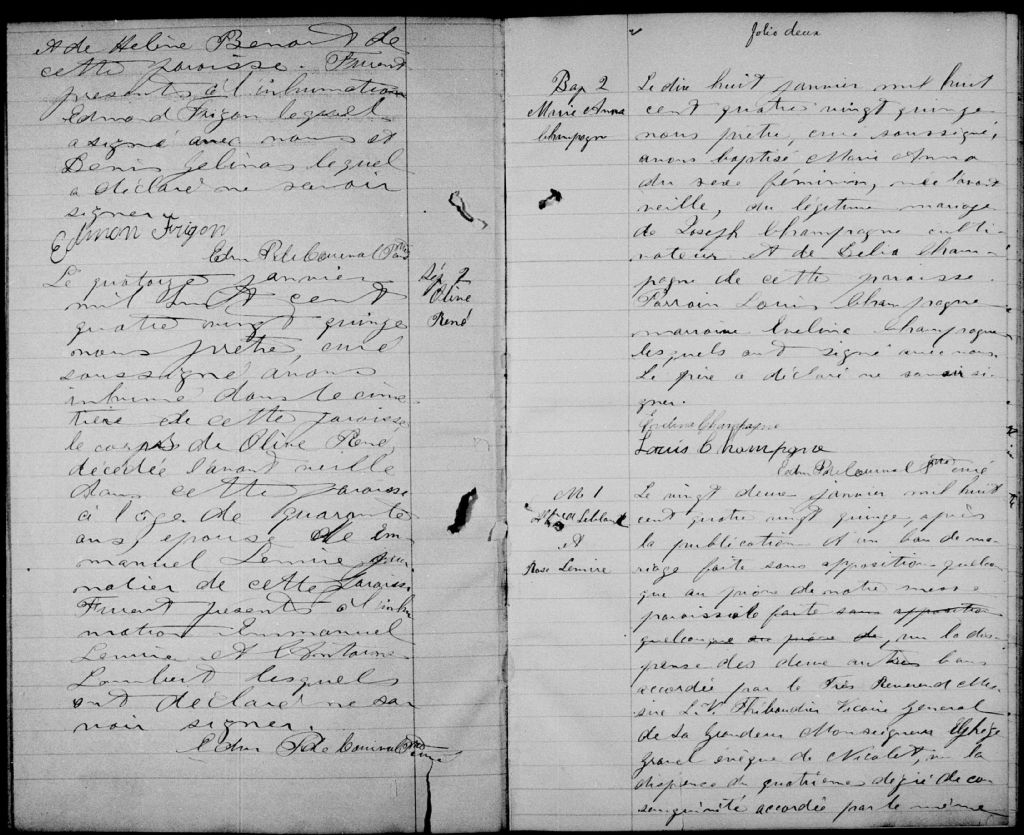 et de Helène Benoit de
cette paroisse. Furent
présents à l'inhumation
Edmond Frigon lequel
a signé avec nous et
Denis Gelinas lequel
a déclaré ne savoir
signer.
Edmon Frigon
Edm P. de Courval Ptre
Sép 2
Olive
René
Le quatorze janvier
mil huit cent
quatre vingt quinze
nous prêtre, curé
soussigné avons
inhumé dans le cime
tière de cette paroisse
le corps de Olive René,
décédée l'avant veille
dans cette paroisse
à l'âge de quarante
ans, épouse de Em
manuel Lemire jour
nalier de cette paroisse
Furent présents à l'inhu
mation Emmanuel
Lemire et Antoine
Lambert lesquels
ont déclaré ne sa
voir signer.
Edm P. de Courval Ptre
curé
folio deux
Bap 2
Marie Anna
Champagne
Le dix huit janvier mil huit
cent quatre vingt quinze
nous prêtre, curé soussigné,
avons baptisé Marie Anna
du sexe féminin, née l'avant
veille, du légitime mariage
de Joseph Champagne culti
vateur et de Célia Cham-
pagne de cette paroisse.
Parrain Louis Champagne
marraine Evelina Champagne
lesquels ont signé avec nous.
Le père a déclaré ne savoir si-
gner.
Evelina Champagne
Louis Champagne
Edm P. de Courval Ptre curé
M 1
Leblanc
et
Rose Lemire
Le vingt deux janvier mil huit
cent quatre vingt quinze, après
la publication d'un ban de ma-
riage faite sans opposition quelcon
que au prône de notre messe
paroissiale faite sans opposition
quelconque au prône de, vu la dis-
pense des deux autres bans
accordée par le Très Révérend Mes
sire L. V. Thibaudier Vicaire Général
de Sa Grandeur Monseigneur Elphège
Gravel évêque de Nicolet, vu la
dispense du quatrième dégré de con
sanguinité accordée par le même